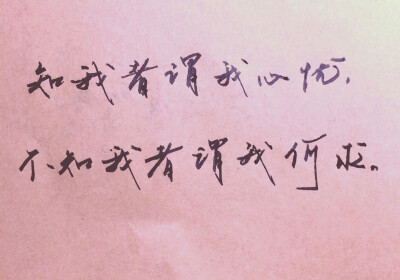 知我者谓我心忧,
不知我者谓我何求。